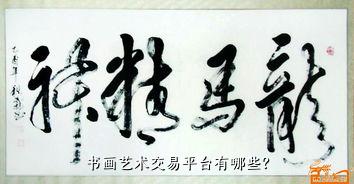 龍馬精神
书画艺术交易平台有哪些?